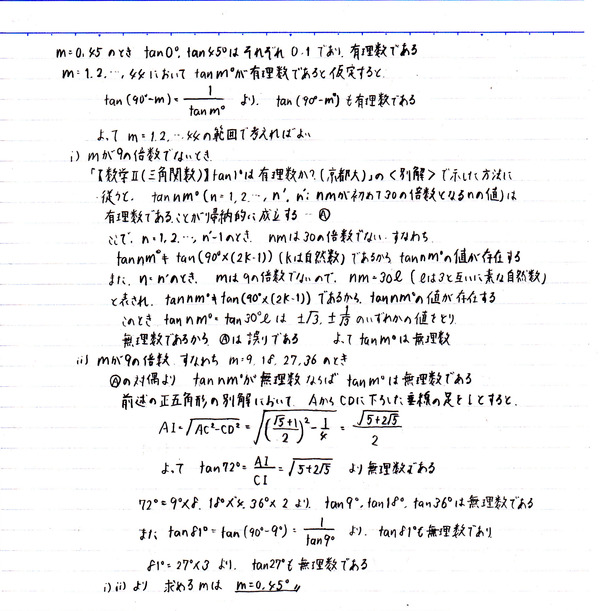 m=0,45のとき tan0°, tan45°はそれぞれ 0,1であり、有理数である
m=1,2,…,44において tanm°が有理数であると仮定すると、
tan(90°-m)=1/tanm° より、 tan(90°-m°)も有理数である
よって m=1,2,…44の範囲で考えればよい
i) mが9の倍数でないとき、
「【数学Ⅱ(三角関数)】tan1°は有理数か?(京都大)」の〈別解〉で示した方法に
従うと、 tannm°(n=1,2,…,n', n'; nmが初めて30の倍数となるnの値)は
有理数であることが帰納的に成立する…Ⓐ
ここで、n=1,2,…,n'-1のとき、nmは30の倍数でない。すなわち
tannm°≠tan(90°×(2k-1))(kは自然数)であるから tannm°の値が存在する
また、n=n'のとき、mは9の倍数でないので、nm=30ℓ(ℓは3と互いに素な自然数)
と表され、tannm°≠tan(90°×(2k-1))であるから、tannm°の値が存在する
このとき tannm°=tan30°ℓは ±√3, ±1/√3 のいずれかの値をとり、
無理数であるから、Ⓐは誤りである よって tanm°は無理数
ii) mが9の倍数、すなわち m=9,18,27,36のとき
Ⓐの対偶より tannm°が無理数ならば tanm°は無理数である
前述の正五角形の別解において、AからCDに下ろした垂線の足をIとすると、
AI=√(AC²-CD²)=√(((√5+1)/2)²-1/4)=√(5+2√5)/2
よって tan72°=AI/CI=√(5+2√5) より無理数である
72°=9°×8, 18°×4, 36°×2 より、tan9°, tan18°, tan36°は無理数である
また tan81°=tan(90°-9°)=1/tan9° より、tan81°も無理数であり
81°=27°×3 より、tan27°も無理数である
i)ii)より 求めるmは m=0,45°